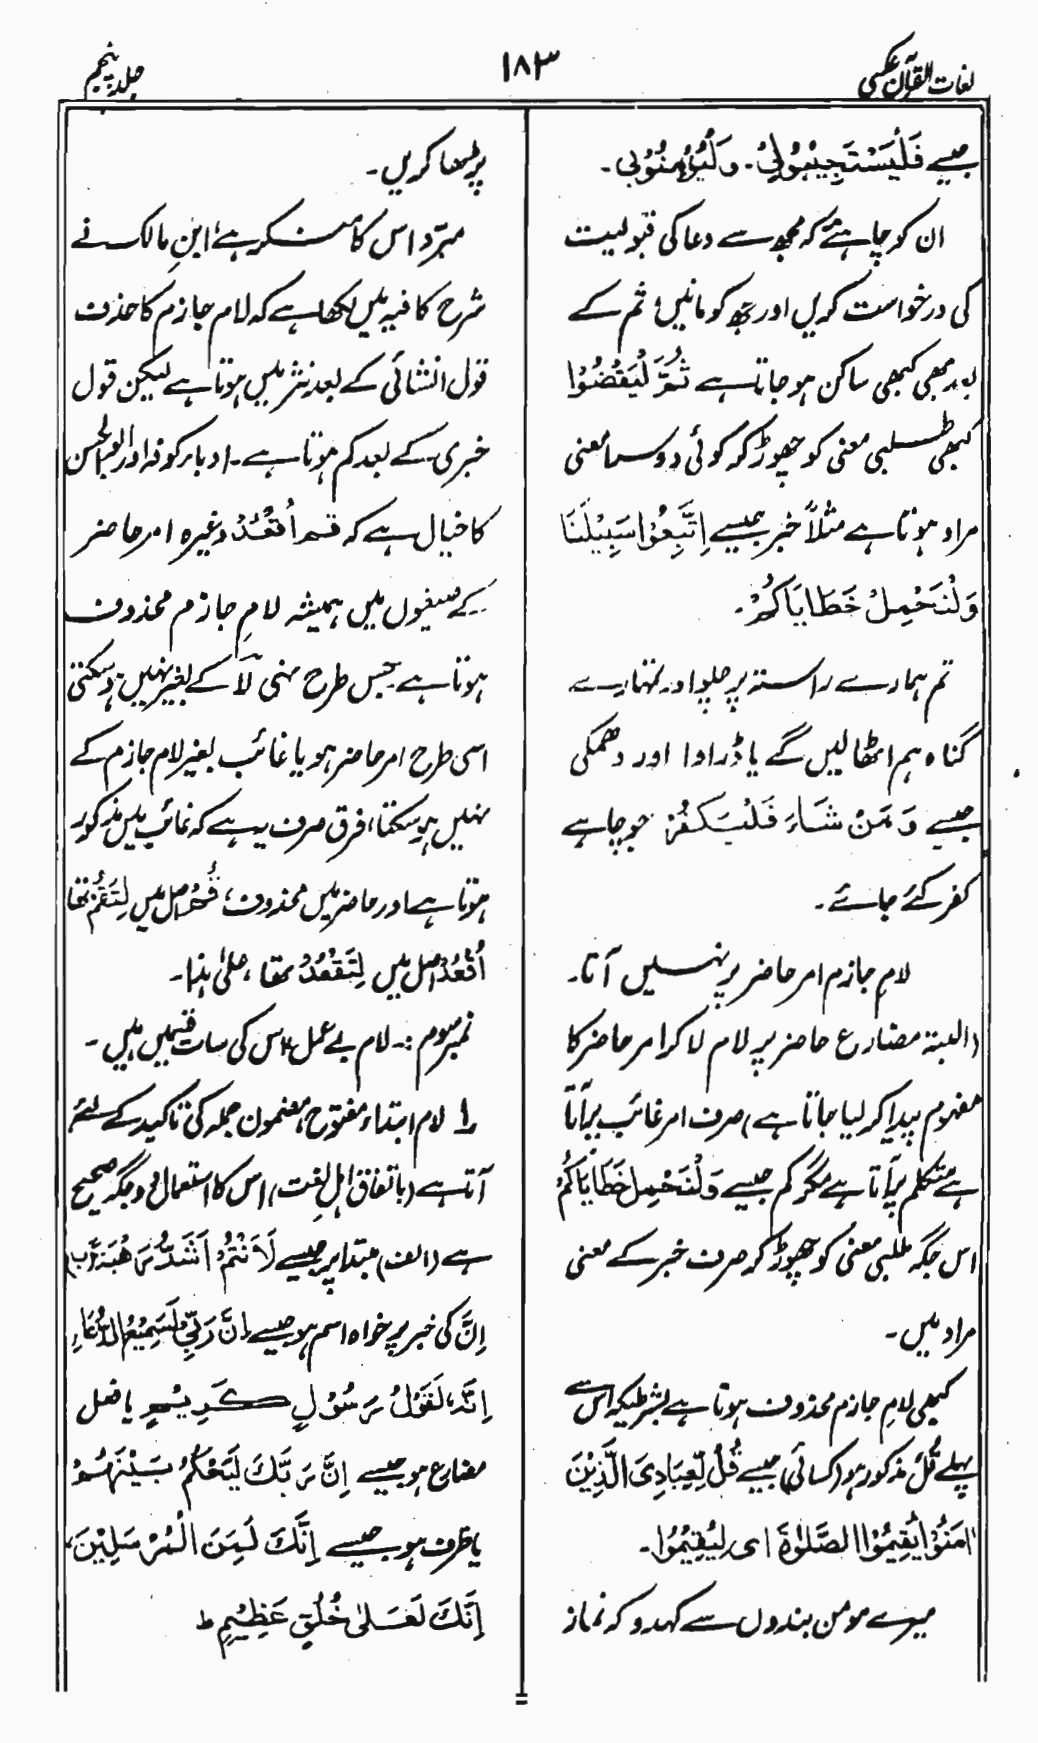 لغات القرآن عکسی
۱۸۳
جلد پنجم
جیسے فَلْیَسْتَجِیْبُوْلِیْ۔ وَلْیُؤْمِنُوْبِی۔
ان کو چاہئے کہ مجھ سے دعا کی قبولیت
کی درخواست کریں اور مجھ کو مانیں، ثم کے
بعد بھی کبھی ساکن ہو جاتا ہے ثُمَّ لْیَقْضُوْا
کبھی طلبی معنی کو چھوڑ کر کوئی دوسرا معنی
مراد ہوتا ہے مثلاً خبر جیسے اِتَّبِعُوْا سَبِیْلَنَا
وَلْنَحْمِلْ خَطَایَاکُمْ۔
تم ہمارے راستہ پر چلو اور تمہارے
گناہ ہم اٹھا لیں گے یا ڈراوا اور دھمکی
جیسے وَمَنْ شَاءَ فَلْیَکْفُرْ جو چاہے
کفر کئے جائے۔
لام جازم امر حاضر پر نہیں آتا۔
(البتہ مضارع حاضر پر لام لاکر امر حاضر کا
مفہوم پیدا کر لیا جاتا ہے) صرف امر غائب پر آتا
ہے متکلم پر آتا ہے مگر کم جیسے وَلْنَحْمِلْ خَطَایَاکُمْ
اس جگہ طلبی معنی کو چھوڑ کر صرف خبر کے معنی
مراد ہیں۔
کبھی لامِ جازم محذوف ہوتا ہے بشرطیکہ اس سے
پہلے قُلْ مذکور ہو (کسائی) جیسے قُلْ لِّعِبَادِیَ الَّذِیْنَ
اٰمَنُوْا یُقِیْمُوا الصَّلٰوۃَ ای لِیُقِیْمُوْا۔
میرے مومن بندوں سے کہدو کہ نماز
پڑھا کریں۔
مبرّد اس کا منکر ہے، ابنِ مالک نے
شرح کافیہ میں لکھا ہے کہ لام جازم کا حذف
قول انشائی کے بعد نثر میں ہوتا ہے لیکن قول
خبری کے بعد کم ہوتا ہے۔ ادبار کوفہ اور ابوالحسن
کا خیال ہے کہ قم اُقْعُدْ وغیرہ امر حاضر
کے صیغوں میں ہمیشہ لامِ جازم محذوف
ہوتا ہے جس طرح نہی لَا کے بغیر نہیں ہو سکتی
اسی طرح امر حاضر ہو یا غائب بغیر لام جازم کے
نہیں ہو سکتا، فرق صرف یہ ہے کہ غائب میں مذکور
ہوتا ہے اور حاضر میں محذوف، قُمْ اصل میں لِتَقُمْ تھا
اُقْعُدْ اصل میں لِتَقْعُدْ تھا، علیٰ ہذا۔
نمبر سوم :۔ لام بے عمل، اس کی سات قسمیں ہیں۔
۱؎ لام ابتداء مفتوح، مضمون جملہ کی تاکید کے لئے
آتا ہے (باتفاق اہلِ لغت) اس کا استعمال دو جگہ صحیح
ہے (الف) مبتدا پر جیسے لَاَنْتُمْ اَشَدُّ رَهْبَةً (ب)
اِنَّ کی خبر پر خواہ اسم ہو جیسے اِنَّ رَبِّیْ لَسَمِیْعُ الدُّعَاءِ
اِنَّهٗ لَقَوْلُ رَسُوْلٍ کَرِیْمٍ یا فعل
مضارع ہو جیسے اِنَّ رَبَّكَ لَیَحْکُمُ بَیْنَهُمْ
یا ظرف ہو جیسے اِنَّكَ لَمِنَ الْمُرْسَلِیْنَ،
اِنَّكَ لَعَلٰی خُلُقٍ عَظِیْمٍ ط